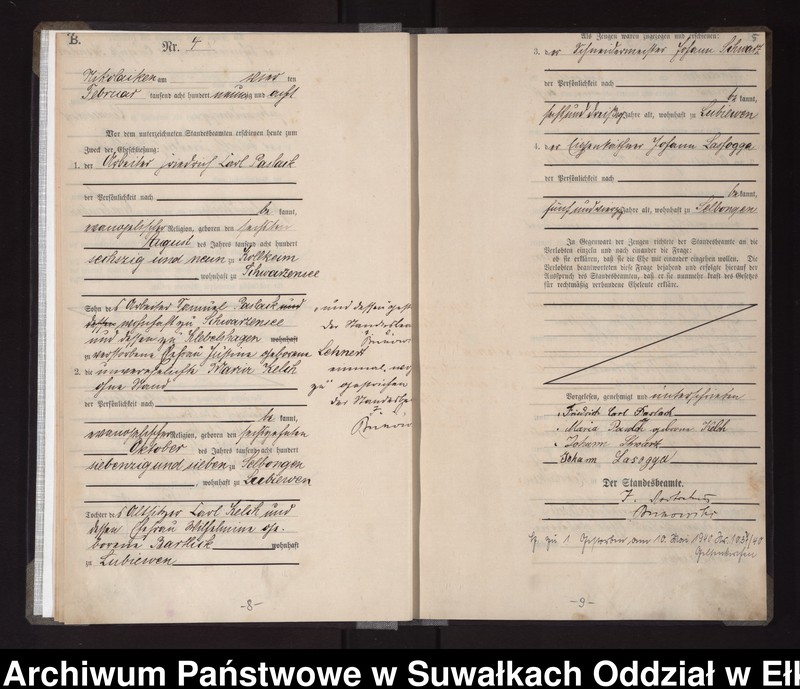 B.
Nr. 4
Nikolaiken am vier ten
Februar tausend acht hundert neunzig und acht
Vor dem unterzeichneten Standesbeamten erschienen heute zum
Zweck der Eheschließung:
1. der Arbeiter Friedrich Carl Paslack
der Persönlichkeit nach
be kannt,
evangelischer Religion, geboren den sechsten
August des Jahres tausend acht hundert
sechszig und neun zu Kollkeim
, wohnhaft zu Schwarzensee
Sohn des Arbeiter Samuel Paslack und
dessen wohnhaft zu Schwarzensee
und dessen zu Klebelshagen wohnhaft
zu verstorbene Ehefrau Justine geborene Lehnert
2. die unverehelichte Maria Kelch
ohne Stand
der Persönlichkeit nach
be kannt,
evangelischer Religion, geboren den sechszehnten
Oktober des Jahres tausend acht hundert
siebenzig und sieben zu Selbongen
, wohnhaft zu Lubiewen
Tochter des Altsitzer Carl Kelch und
dessen Ehefrau Wilhelmine ge-
borene Bartlick wohnhaft
zu Lubiewen
, und dessen
der Standesbea
einmal
zu gestrichen
der Standesbe
-8-
5
Als Zeugen waren zugezogen und erschienen:
3. der Schneidermeister Johann Schwarz
der Persönlichkeit nach
be kannt,
sechsunddreißig Jahre alt, wohnhaft zu Lubiewen
4. der Eigenkäthner Johann Lassogga
der Persönlichkeit nach
be kannt,
fünfundvierzig Jahre alt, wohnhaft zu Selbongen
In Gegenwart der Zeugen richtete der Standesbeamte an die
Verlobten einzeln und nach einander die Frage:
ob sie erklären, daß sie die Ehe mit einander eingehen wollen. Die
Verlobten beantworteten diese Frage bejahend und erfolgte hierauf der
Ausspruch des Standesbeamten, daß er sie nunmehr kraft des Gesetzes
für rechtmäßig verbundene Eheleute erkläre.
Vorgelesen, genehmigt und unterschrieben
Friedrich Carl Paslack
Maria Paslack geborene Kelch
Johann Schwarz
Joham Lasogga
Der Standesbeamte.
zu 1 Gestorben am 10. Mai 1940
-9-
Archiwum Państwowe w Suwałkach Oddział w Ełk